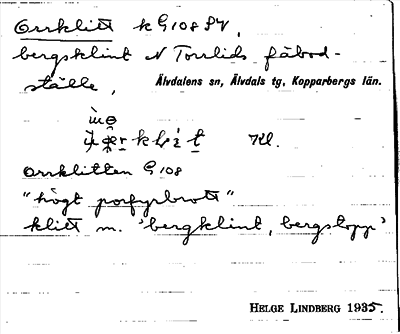 Orrklitt k G108 SV,
bergsklint N Torrlids fäbod-
ställe, Älvdalens sn, Älvdals tg, Kopparbergs län.
Kl.
Orrklitten G 108
"högt porfyrbrott"
klitt m. 'bergklint, bergstopp'
HELGE LINDBERG 1935.